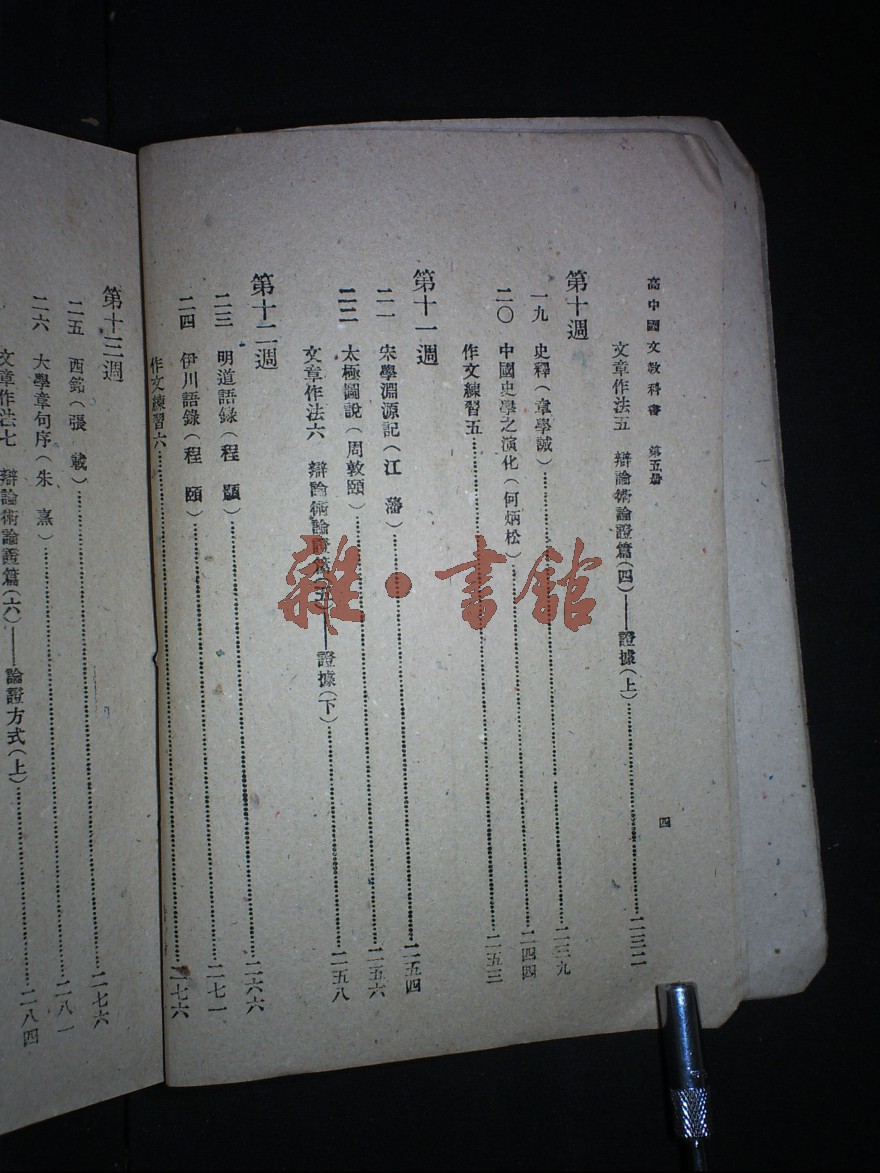 高中國文教科書　第五册
四
文章作法五　辯論術論證篇(四)——證據(上)……二三二
第十週
一九　史釋(章學誠)……二三九
二〇　中國史學之演化(何炳松)……二四四
作文練習五……二五三
第十一週
二一　宋學淵源記(江　藩)……二五四
二二　太極圖說(周敦頤)……二五六
文章作法六　辯論術論證篇(五)——證據(下)……二五八
第十二週
二三　明道語錄(程　顥)……二六六
二四　伊川語錄(程　頤)……二七一
作文練習六……二七六
第十三週
二五　西銘(張　載)……二七六
二六　大學章句序(朱　熹)……二八一
文章作法七　辯論術論證篇(六)——論證方式(上)……二八四
雜·書館